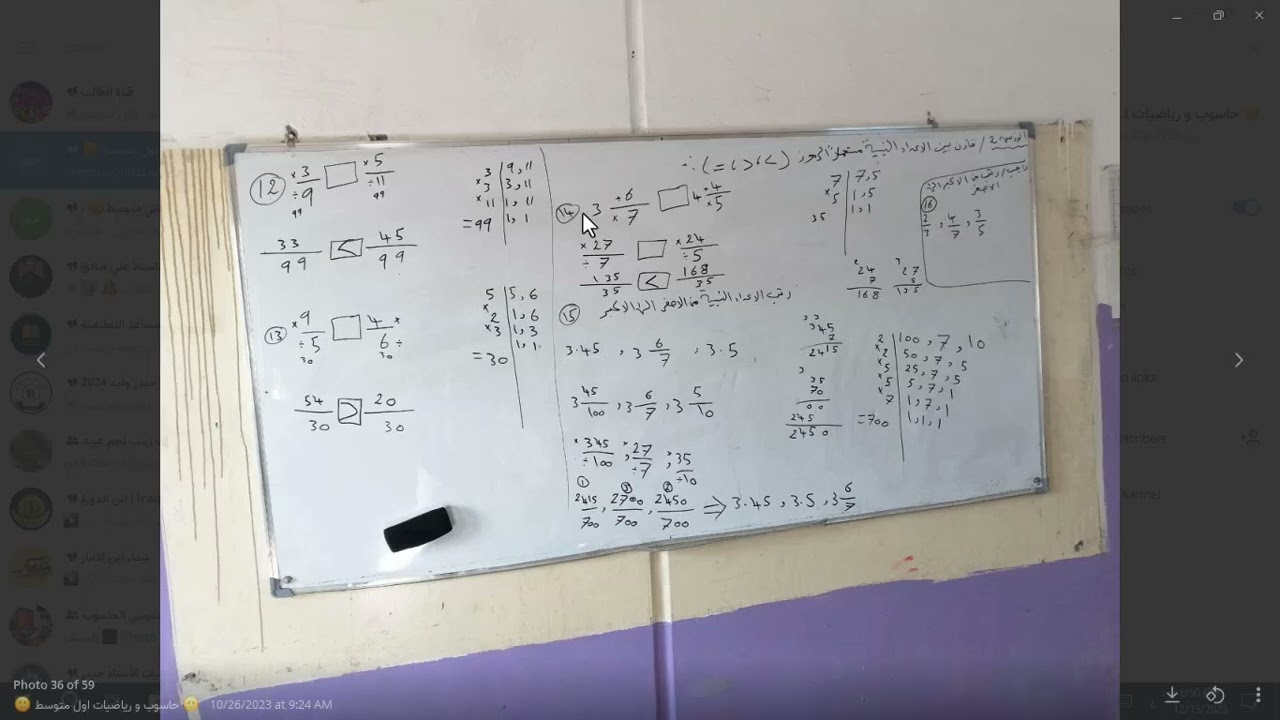 قناة الطالب
حاسوب و رياضيات ا
2024
Photo 36 of 59
حاسوب و رياضيات اول متوسط
10/26/2023 at 9:24 AM
12/15/2023
2 / قارن بين الاعداد النسبية مستعملاً الرموز (>، <، =) :
12
×3 ×5
÷9 ÷11
99 99
33 < 45
99 99
×3 | 9, 11
×3 | 3, 11
×11 | 1, 11
=99 | 1, 1
13
×9 4×
÷5 6÷
30 30
54 > 20
30 30
5 | 5, 6
×2 | 1, 6
×3 | 1, 3
=30 | 1, 1
14
3 +6/×7 4 +4/×5
×27 ×24
÷7 ÷5
135 < 168
35 35
7 | 7, 5
×5 | 1, 5
35 | 1, 1
24 27
7 5
168 135
15 رتب الاعداد النسبية من الاصغر الى الاكبر
3.45 , 3 6/7 , 3.5
3 45/100 , 3 6/7 , 3 5/10
×345/÷100 , ×27/÷7 , ×35/÷10
① ③ ②
2415/700 , 2700/700 , 2450/700 ⇒ 3.45 , 3.5 , 3 6/7
345
7
2415
35
70
00
245
2450
2 | 100, 7, 10
×2 | 50, 7, 5
×5 | 25, 7, 5
×5 | 5, 7, 1
7 | 1, 7, 1
=700 | 1, 1, 1
واجب / رتب من الاكبر الى
الاصغر
16
2/3 , 4/7 , 3/5